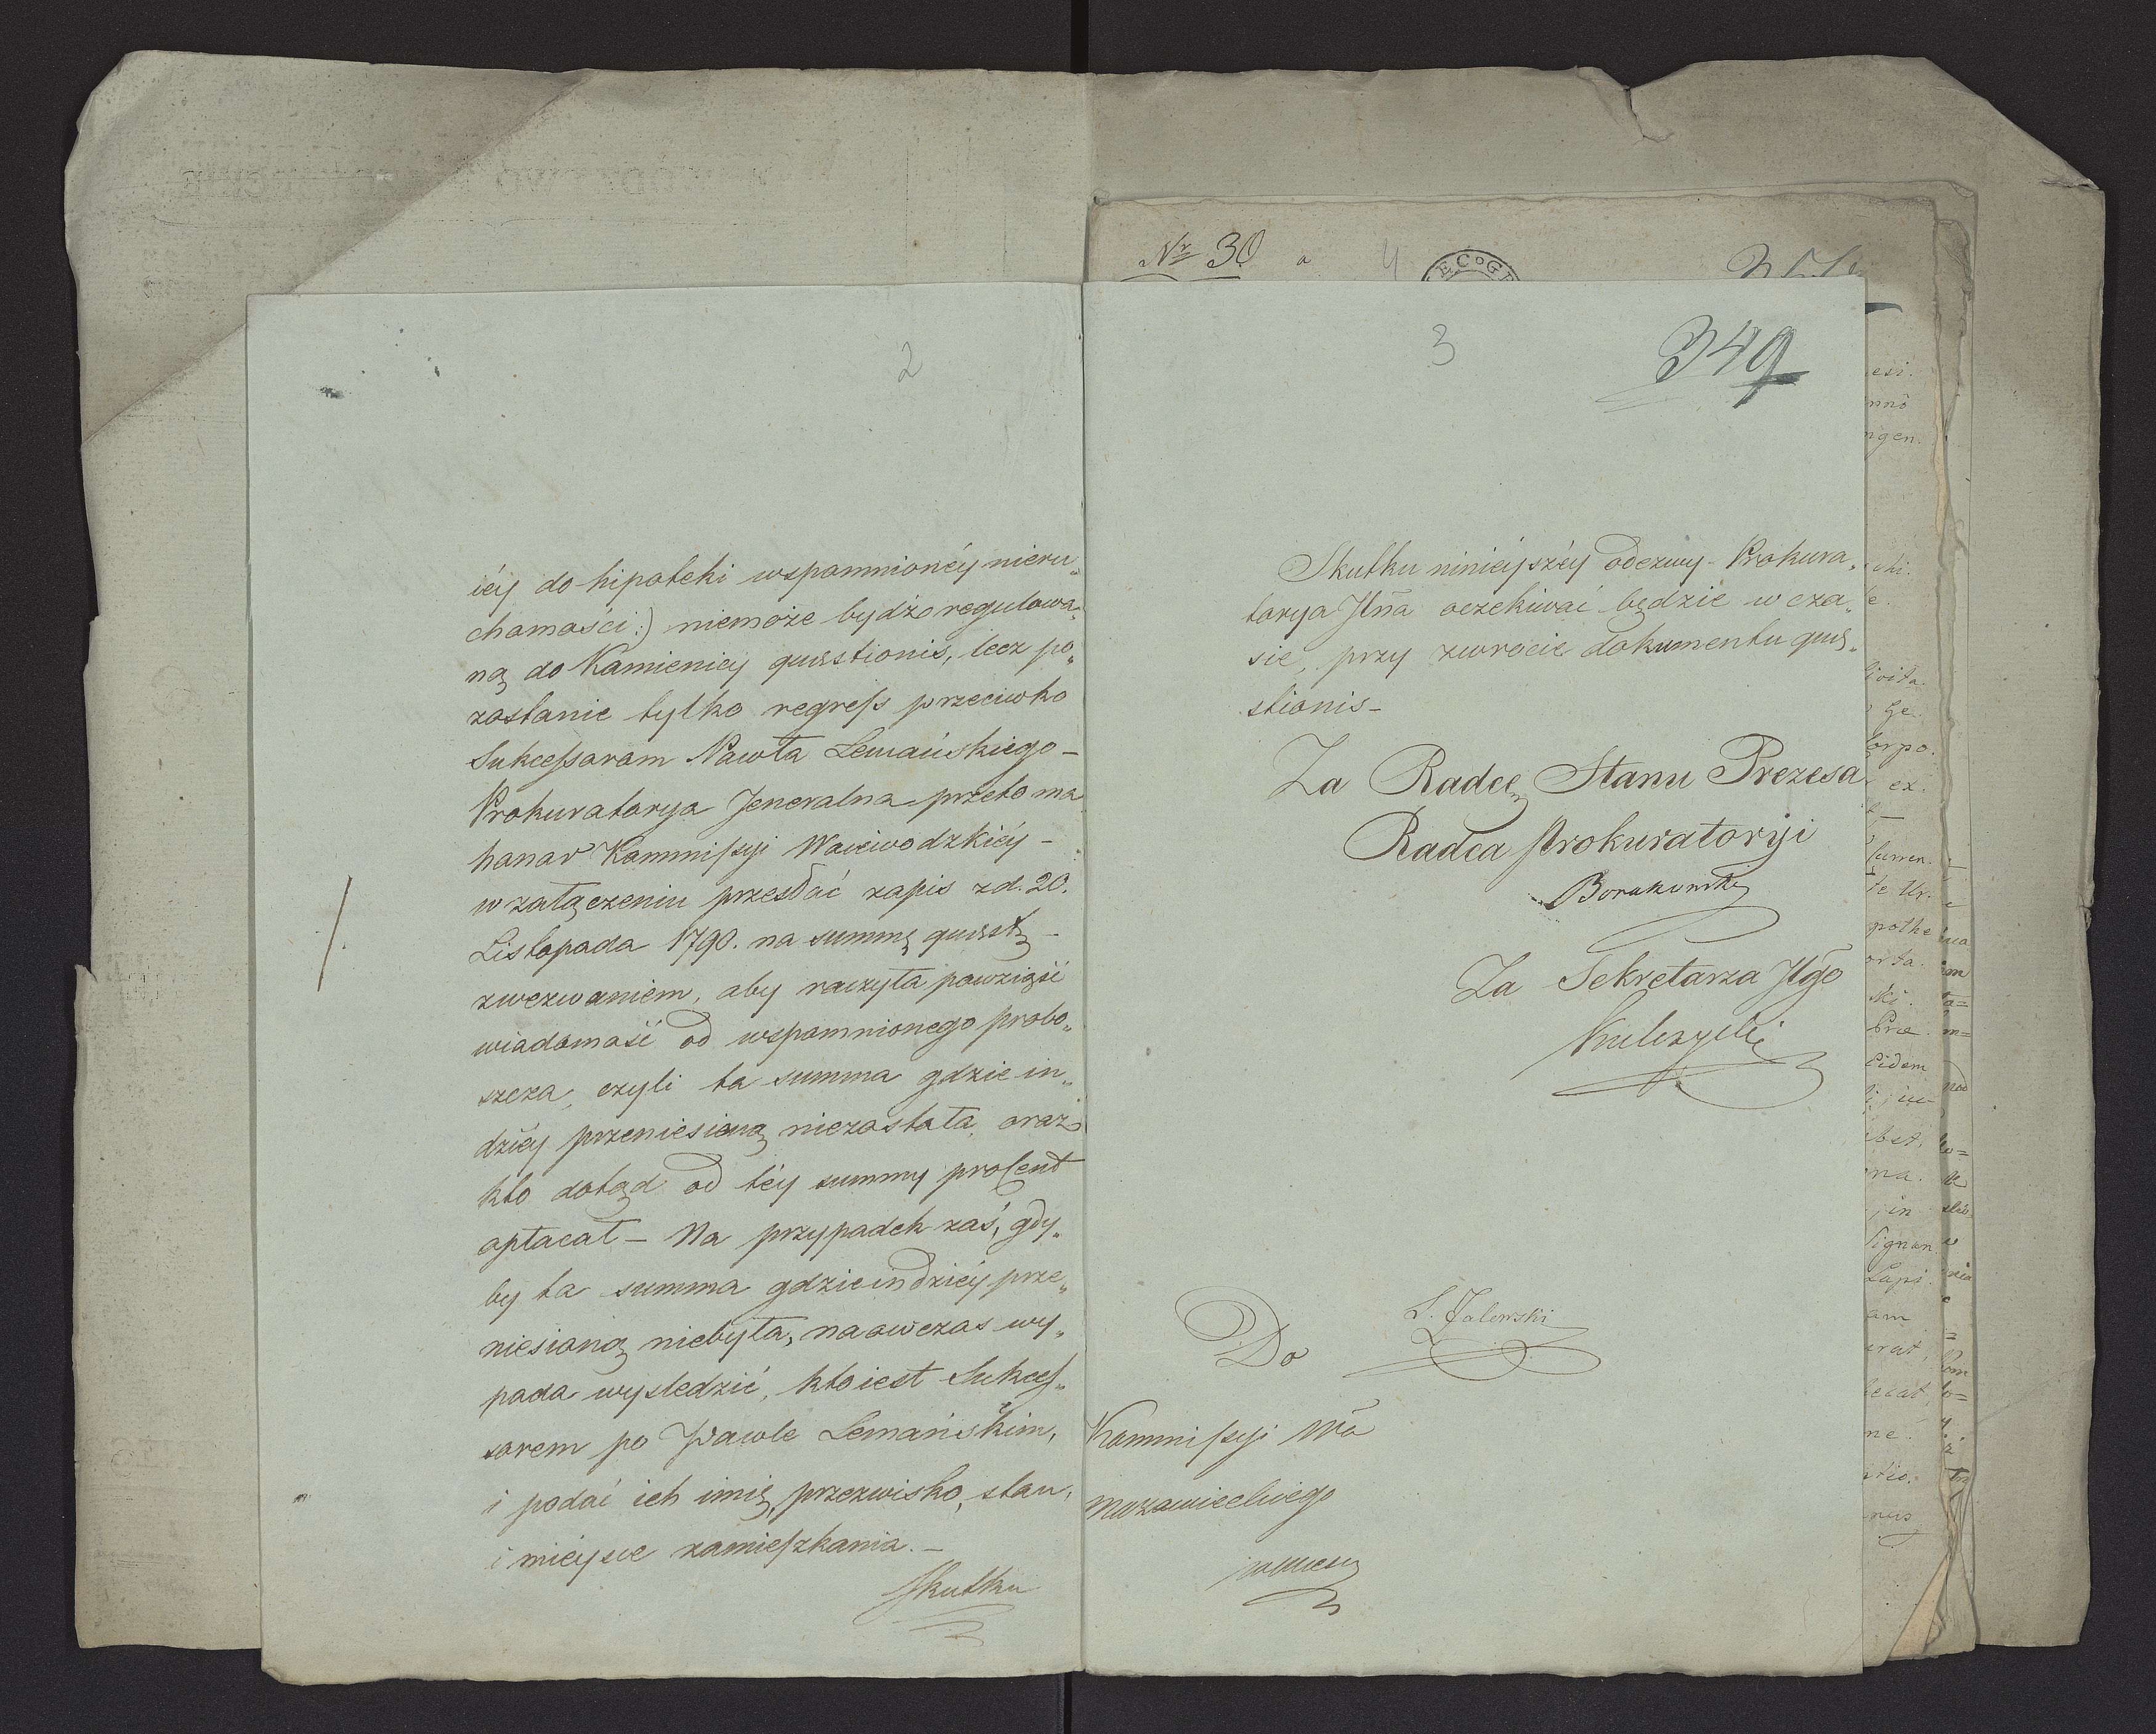 2
iéy do hipoteki wspomnionéy nieru„
chomości:) niemoże bydź regulowa„
ną do Kamienicy quæstionis, lecz po„
zostanie tylko regress przeciwko
Sukcessorom Pawła Lemańskiego –
Prokuratorya Jeneralna przeto ma
honor Kommissyi Woiewodzkiéy –
w załączeniu przesłać zapis z d. 20.
Listopada 1790. na summę quæst:
z wezwaniem, aby raczyła powziąść
wiadomość od wspomnionego probo„
szcza, czyli ta summa gdzie in„
dziéy przeniesioną niezostała, oraz
kto dotąd od téy summy procent
opłacał – Na przypadek zaś, gdy„
by ta summa gdzieindziéy prze„
niesioną niebyła, naówczas wy„
pada wyśledzić, kto iest Sukces„
sorem po Pawle Lemańskim,
i podać ich imię, przezwisko, stan,
i mieysce zamieszkania. –
Skutku
Nr 30 a 4
3
349
Skutku ninieyszéy odezwy Prokura„
torya Jlna oczekiwać będzie w cza„
sie, przy zwrocie dokumentu quæ„
stionis –
Za Radcę Stanu Prezesa
Radca Prokuratoryi
Za Sekretarza Jlgo
Do
Kommissyi Wa
Mazowieckiego
esi.
nnō
ngen.